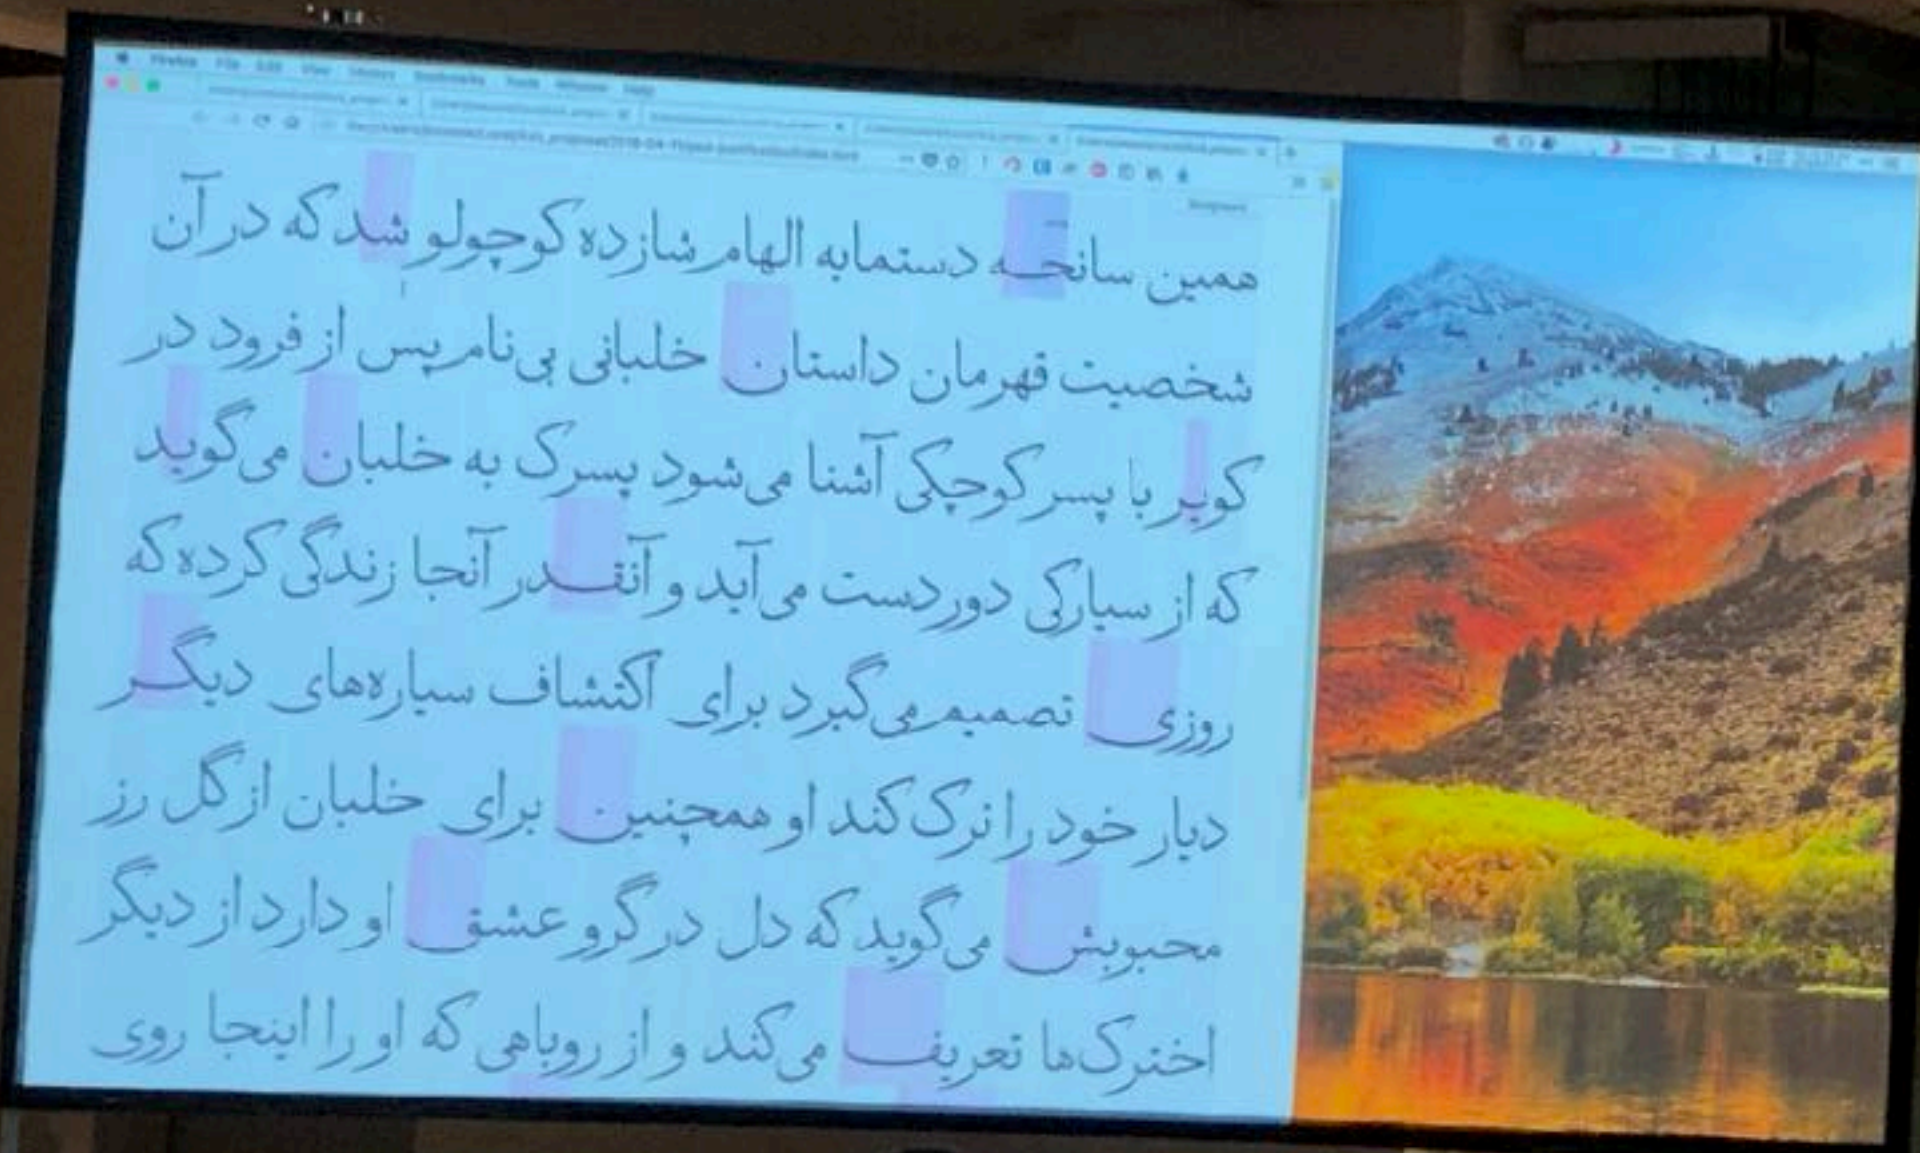 Firefox File Edit View History Bookmarks Tools Window Help
همین سانحه دستمایه الهام شازده کوچولو شد که در آن
شخصیت قهرمان داستان خلبانی بی‌نام پس از فرود در
کویر با پسر کوچکی آشنا می‌شود پسرک به خلبان می‌گوید
که از سیارکی دوردست می‌آید و آنقدر آنجا زندگی کرده که
روزی تصمیم می‌گیرد برای اکتشاف سیاره‌های دیگر
دیار خود را ترک کند او همچنین برای خلبان از گل رز
محبوبش می‌گوید که دل در گرو عشق او دارد از دیگر
اخترک‌ها تعریف می‌کند و از روباهی که او را اینجا روی